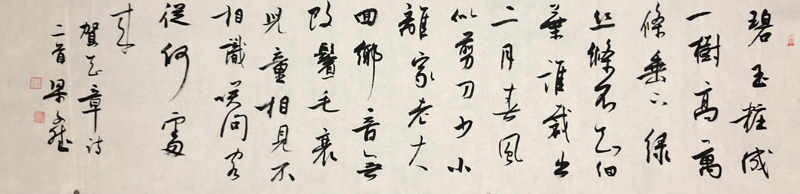 碧玉粧成
一樹高萬
條垂下綠
丝絛不知細
葉誰裁出
二月春風
似剪刀少小
離家老大
回鄉音無
改鬢毛衰
兒童相見不
相識咲問客
從何處
來
賀知章诗
二首梁